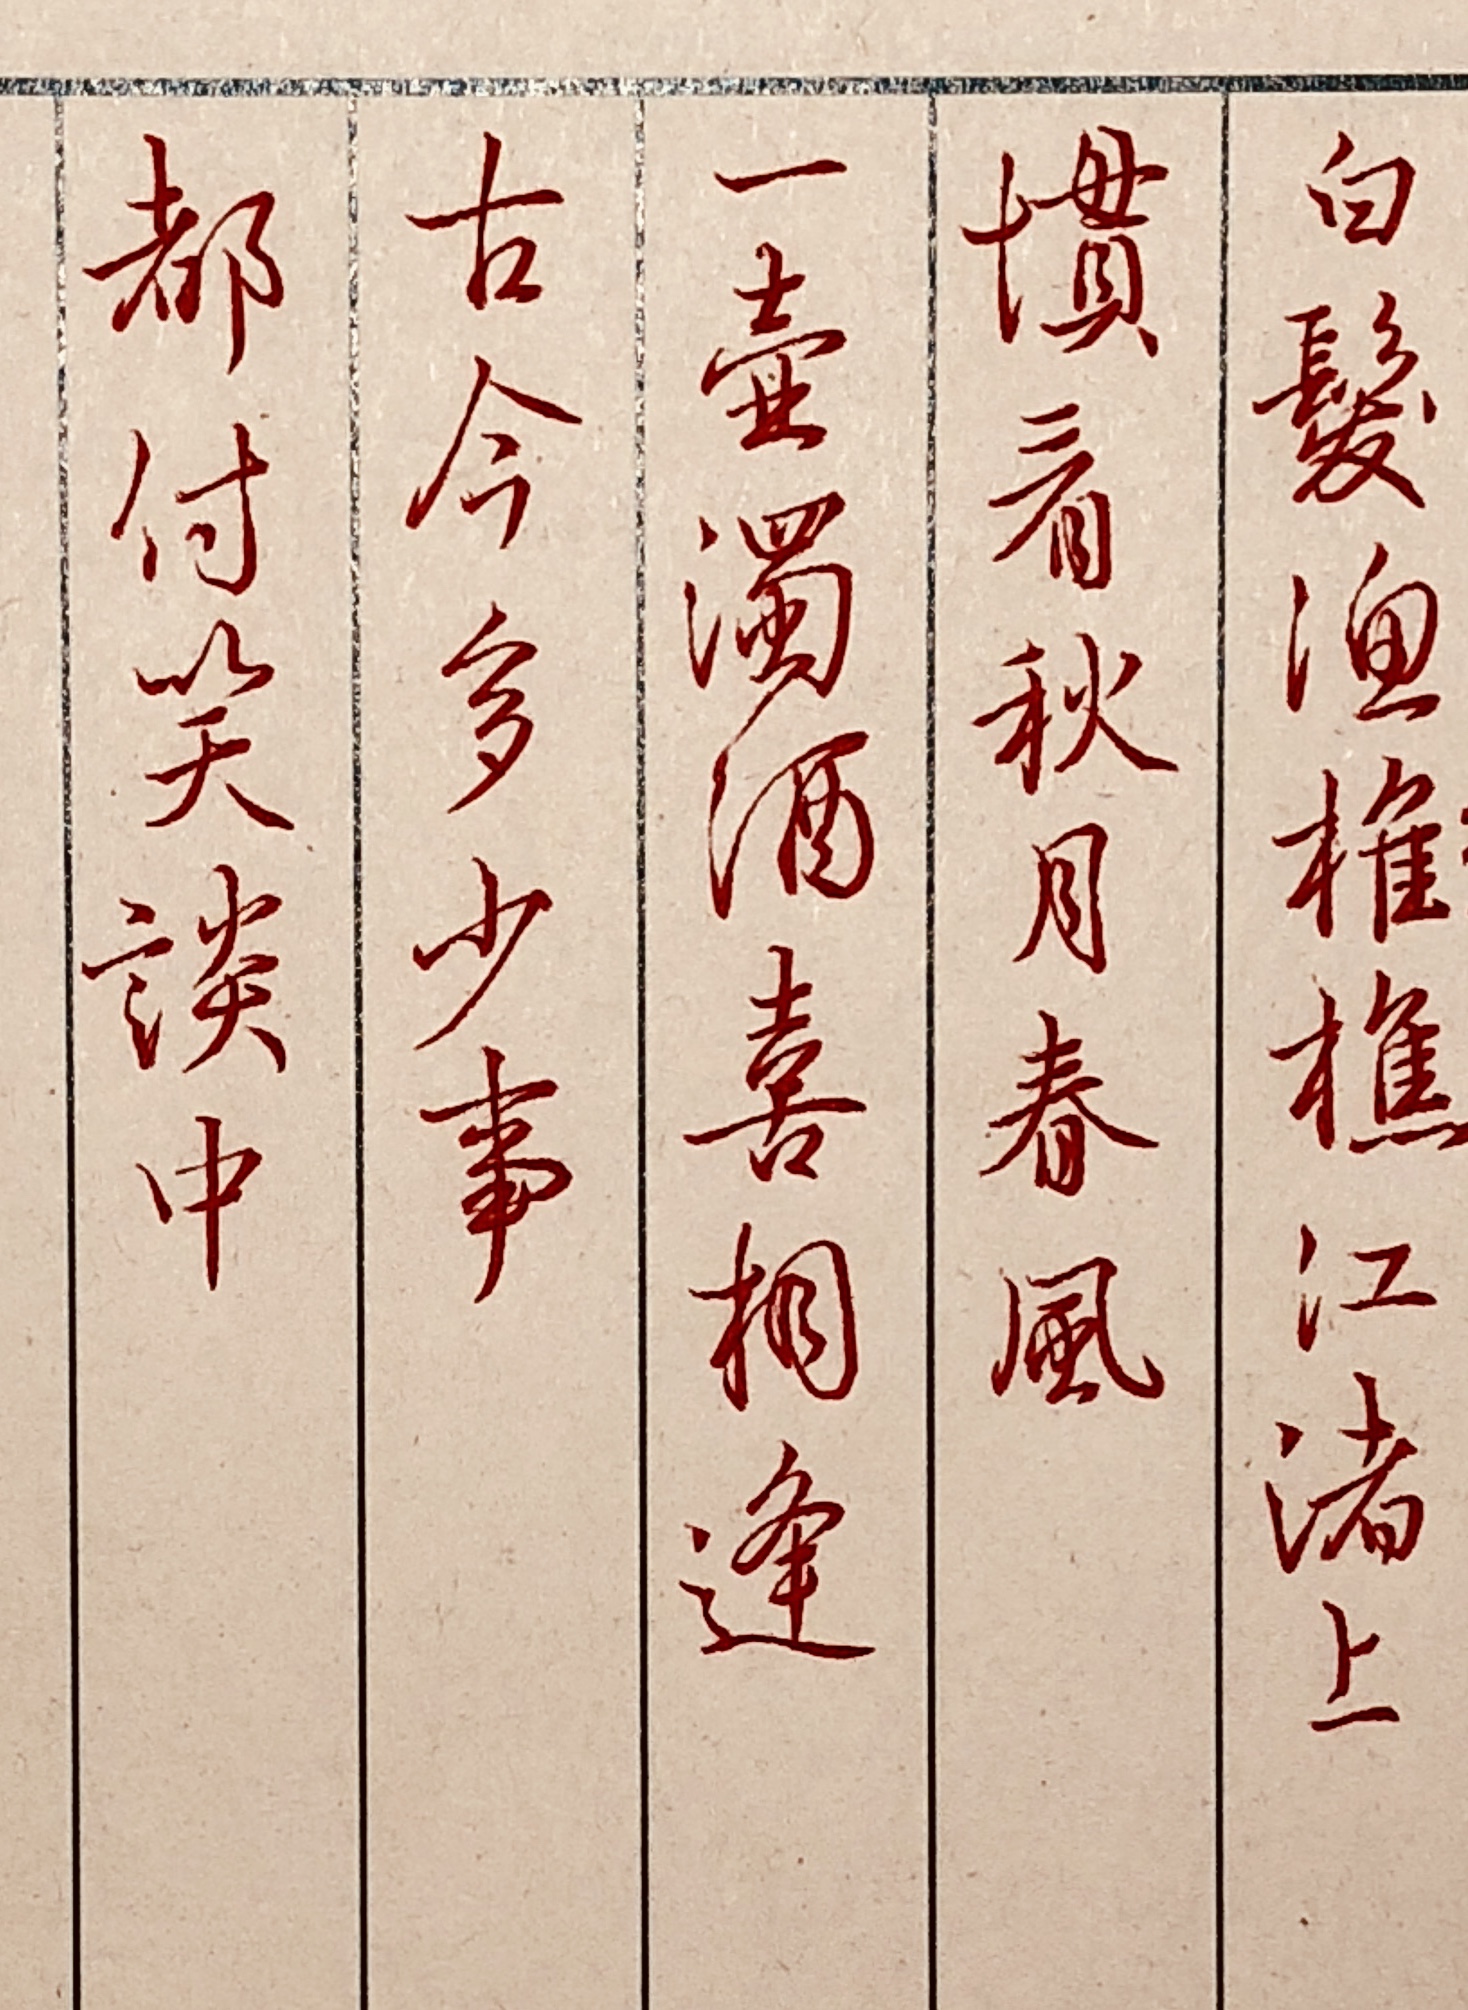 白髮渔椎樵江渚上
慣看秋月春風
一壺濁酒喜相逢
古今多少事
都付笑談中